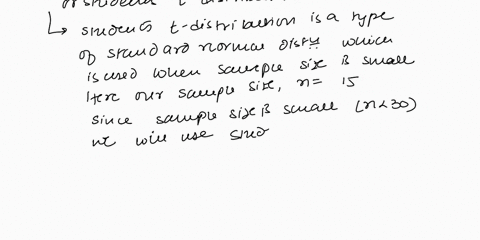 students t-distribution is a type
of standard normal distⁿ which
is used when sample size is small
Here our sample size, n= 15
since sample size is small (n<30)
we will use